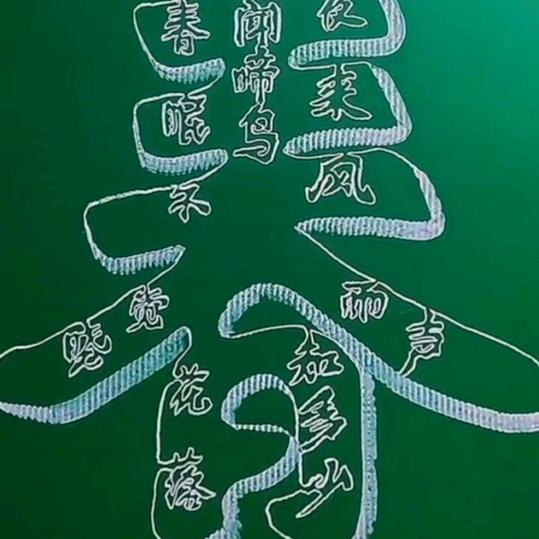 春眠不觉晓
闻啼鸟
夜来风雨声
花落
知多少